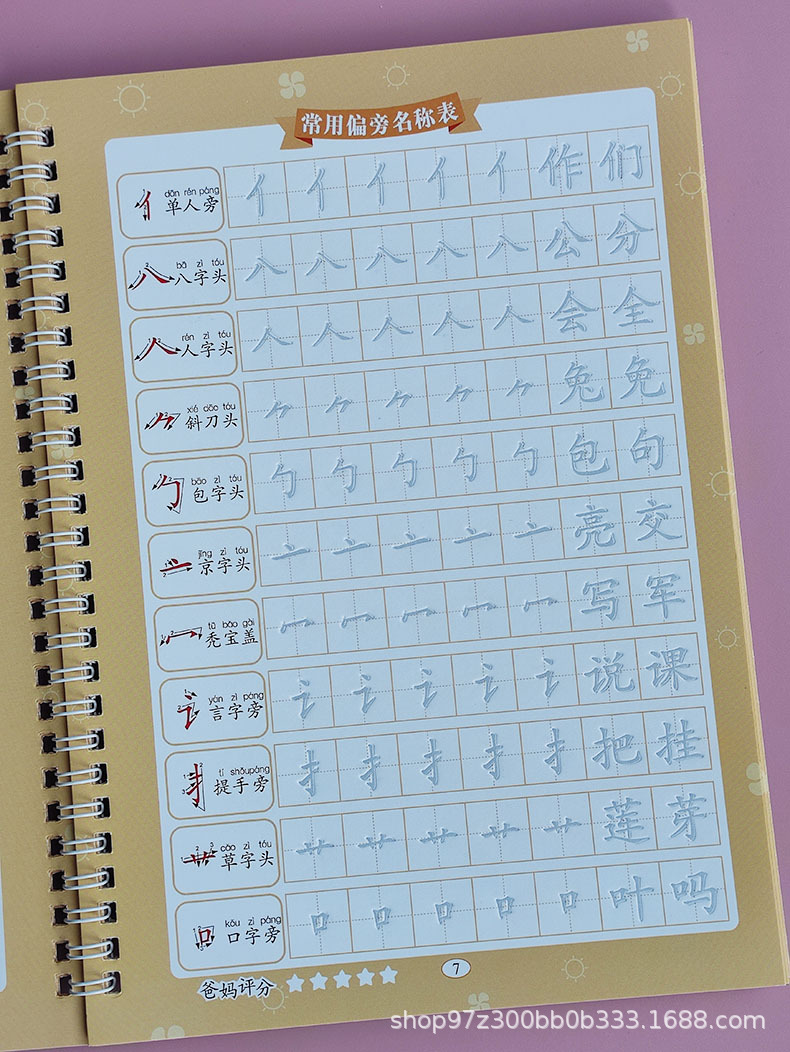 常用偏旁名称表
dān rén páng
单人旁 亻 亻 亻 亻 亻 作 们
bā zì tóu
八字头 八 八 八 八 八 公 分
rén zì tóu
人字头 人 人 人 人 人 会 全
xié dāo tóu
斜刀头 ⺈ ⺈ ⺈ ⺈ ⺈ 兔 免
bāo zì tóu
包字头 勹 勹 勹 勹 勹 包 句
jīng zì tóu
京字头 亠 亠 亠 亠 亠 亮 交
tū bǎo gài
秃宝盖 冖 冖 冖 冖 冖 写 军
yán zì páng
言字旁 讠 讠 讠 讠 讠 说 课
tí shǒupáng
提手旁 扌 扌 扌 扌 扌 把 挂
cǎo zì tóu
草字头 艹 艹 艹 艹 艹 莲 芽
kǒu zì páng
口字旁 口 口 口 口 口 叶 吗
爸妈评分
7
shop97z300bb0b333.1688.com